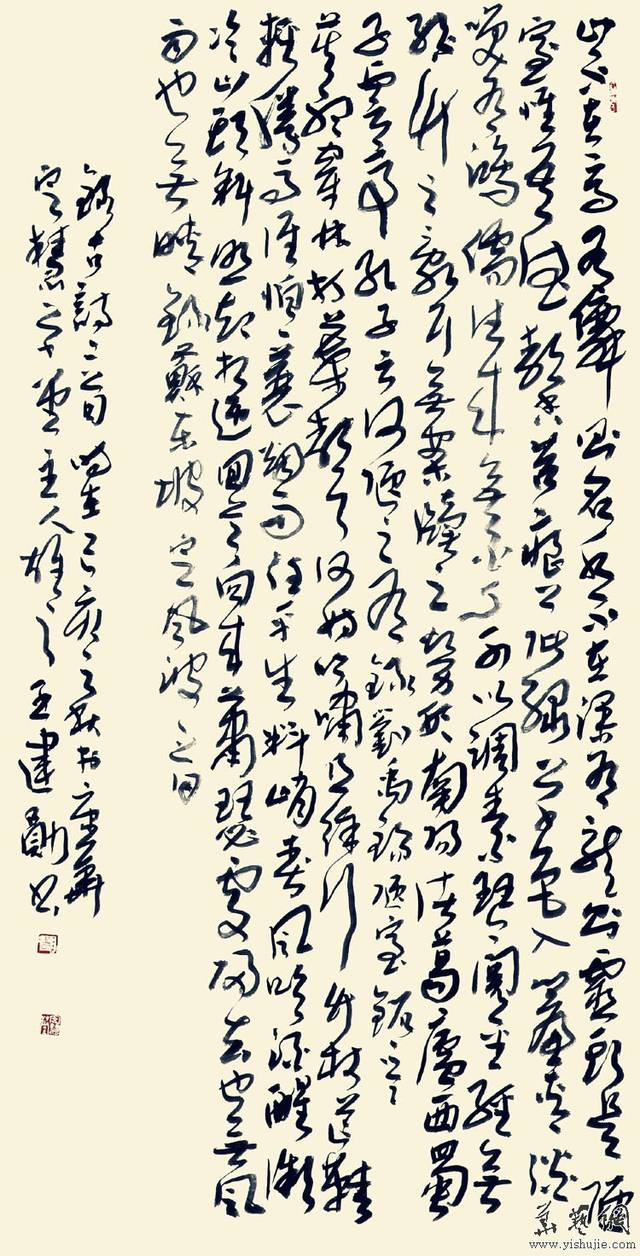 山不在高有僊則名水不在深有龍則靈斯是陋
室惟吾德馨苔痕上階綠草色入簾青談
笑有鴻儒往來無白丁可以調素琴閱金經無
絲竹之亂耳無案牘之勞形南陽諸葛廬西蜀
子雲亭孔子云何陋之有錄劉禹錫陋室銘
莫聽穿林打葉聲何妨吟嘯且徐行竹杖芒鞋
輕勝馬誰怕一蓑煙雨任平生料峭春風吹酒醒微
冷山頭斜照却相迎回首向來蕭瑟處歸去也無風
雨也無晴錄蘇東坡定風波之句
錄古詩二首時在己亥之秋於京華
主人雄之王建勛書
華藝網
www.yishujie.com